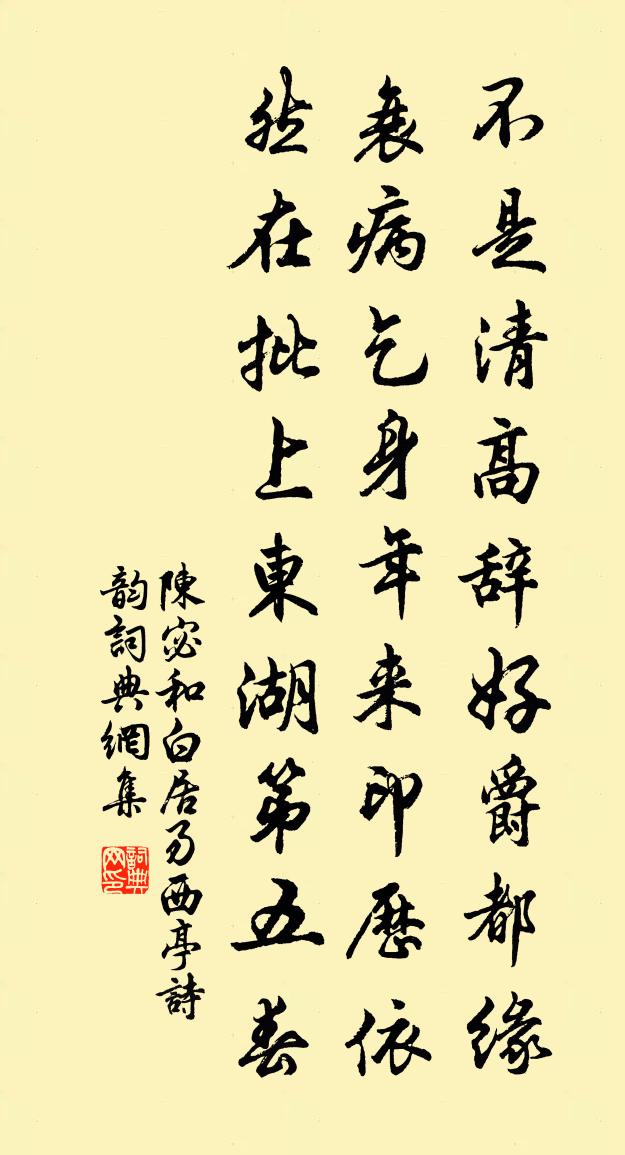 不是清高辞好爵都緣
衰病乞身年来印歷依
然在批上東湖第五春
陳宓和白居易西亭詩
韵詞典網集
詞典網印